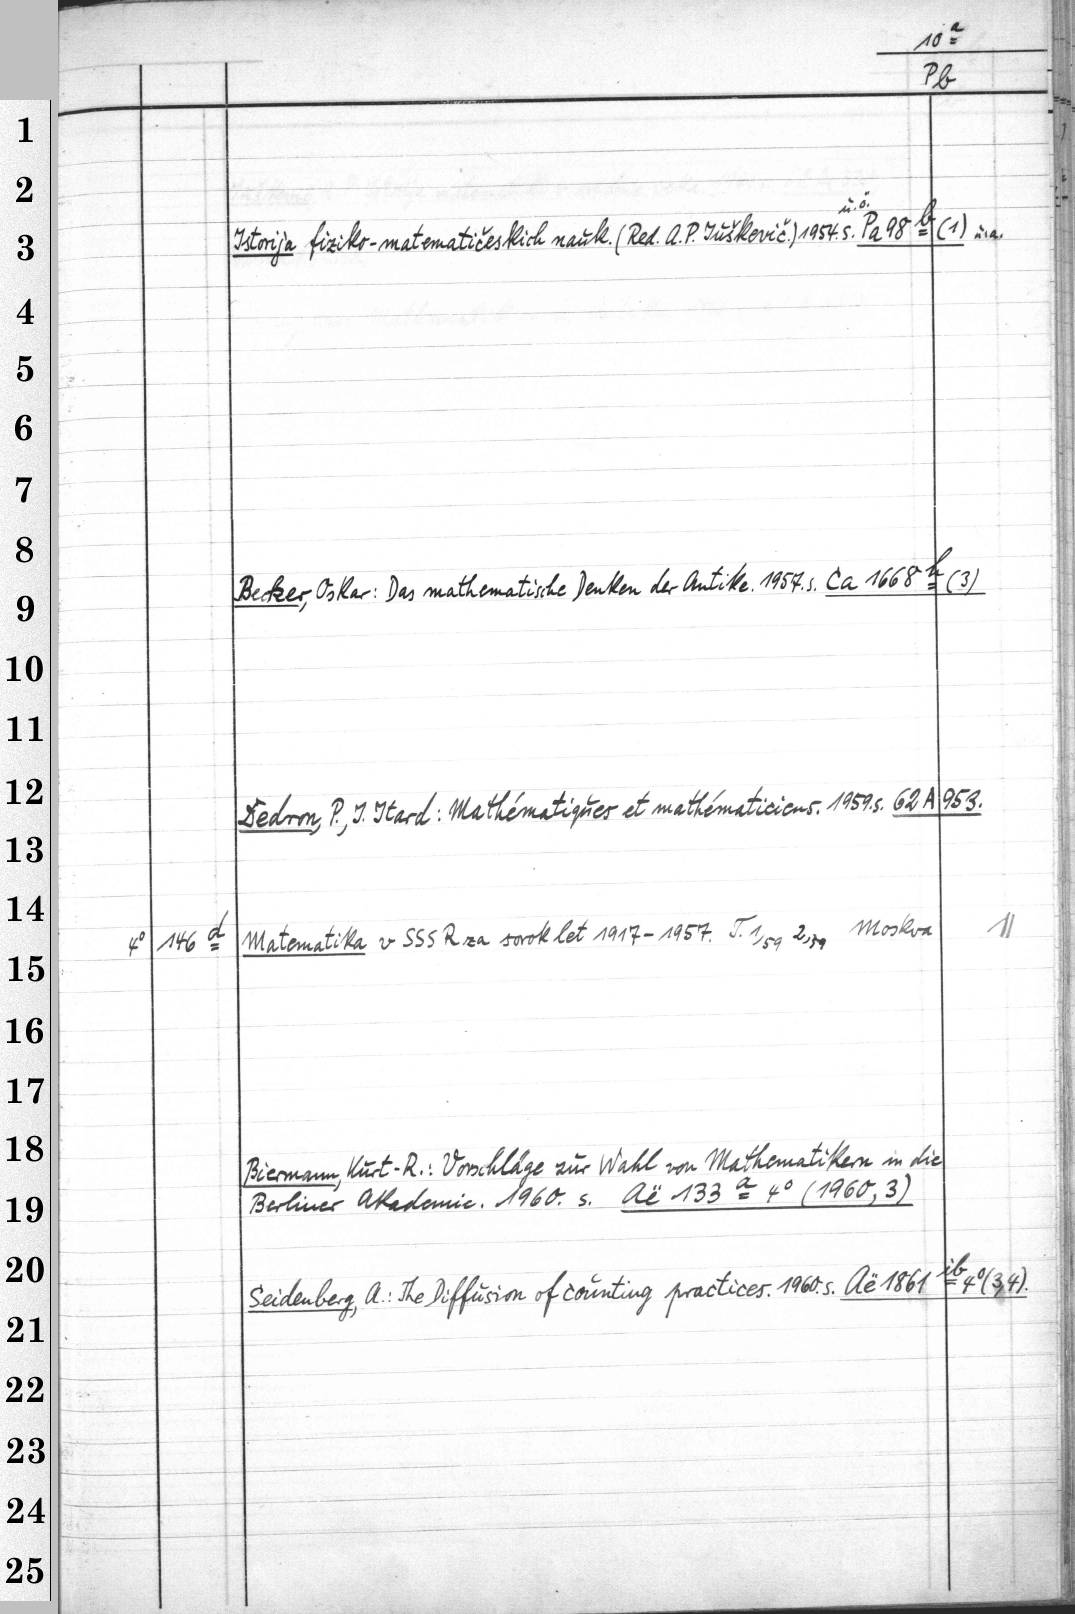 10 a
Pb
1
2
ü. ö.
3 Istorija fiziko-matematičeskich nauk. (Red. A.P. Juškevič.) 1954. s. Pa 98 b (1) u.a.
4
5
6
7
8
9 Becker, Oskar: Das mathematische Denken der Antike. 1957. s. Ca 1668 h (3)
10
11
12 Dedron, P., J. Itard: Mathématiques et mathématiciens. 1959. s. 62 A 953.
13
14
4° 146 d Matematika v SSSR za sorok let 1917-1957. T. 1,59 2,59 Moskva II
15
16
17
18 Biermann, Kurt-R.: Vorschläge zur Wahl von Mathematikern in die
19 Berliner Akademie. 1960. s. Aë 133 a 4° (1960, 3)
20
Seidenberg, A.: The Diffusion of counting practices. 1960. s. Aë 1861 ib 4° (3,4).
21
22
23
24
25